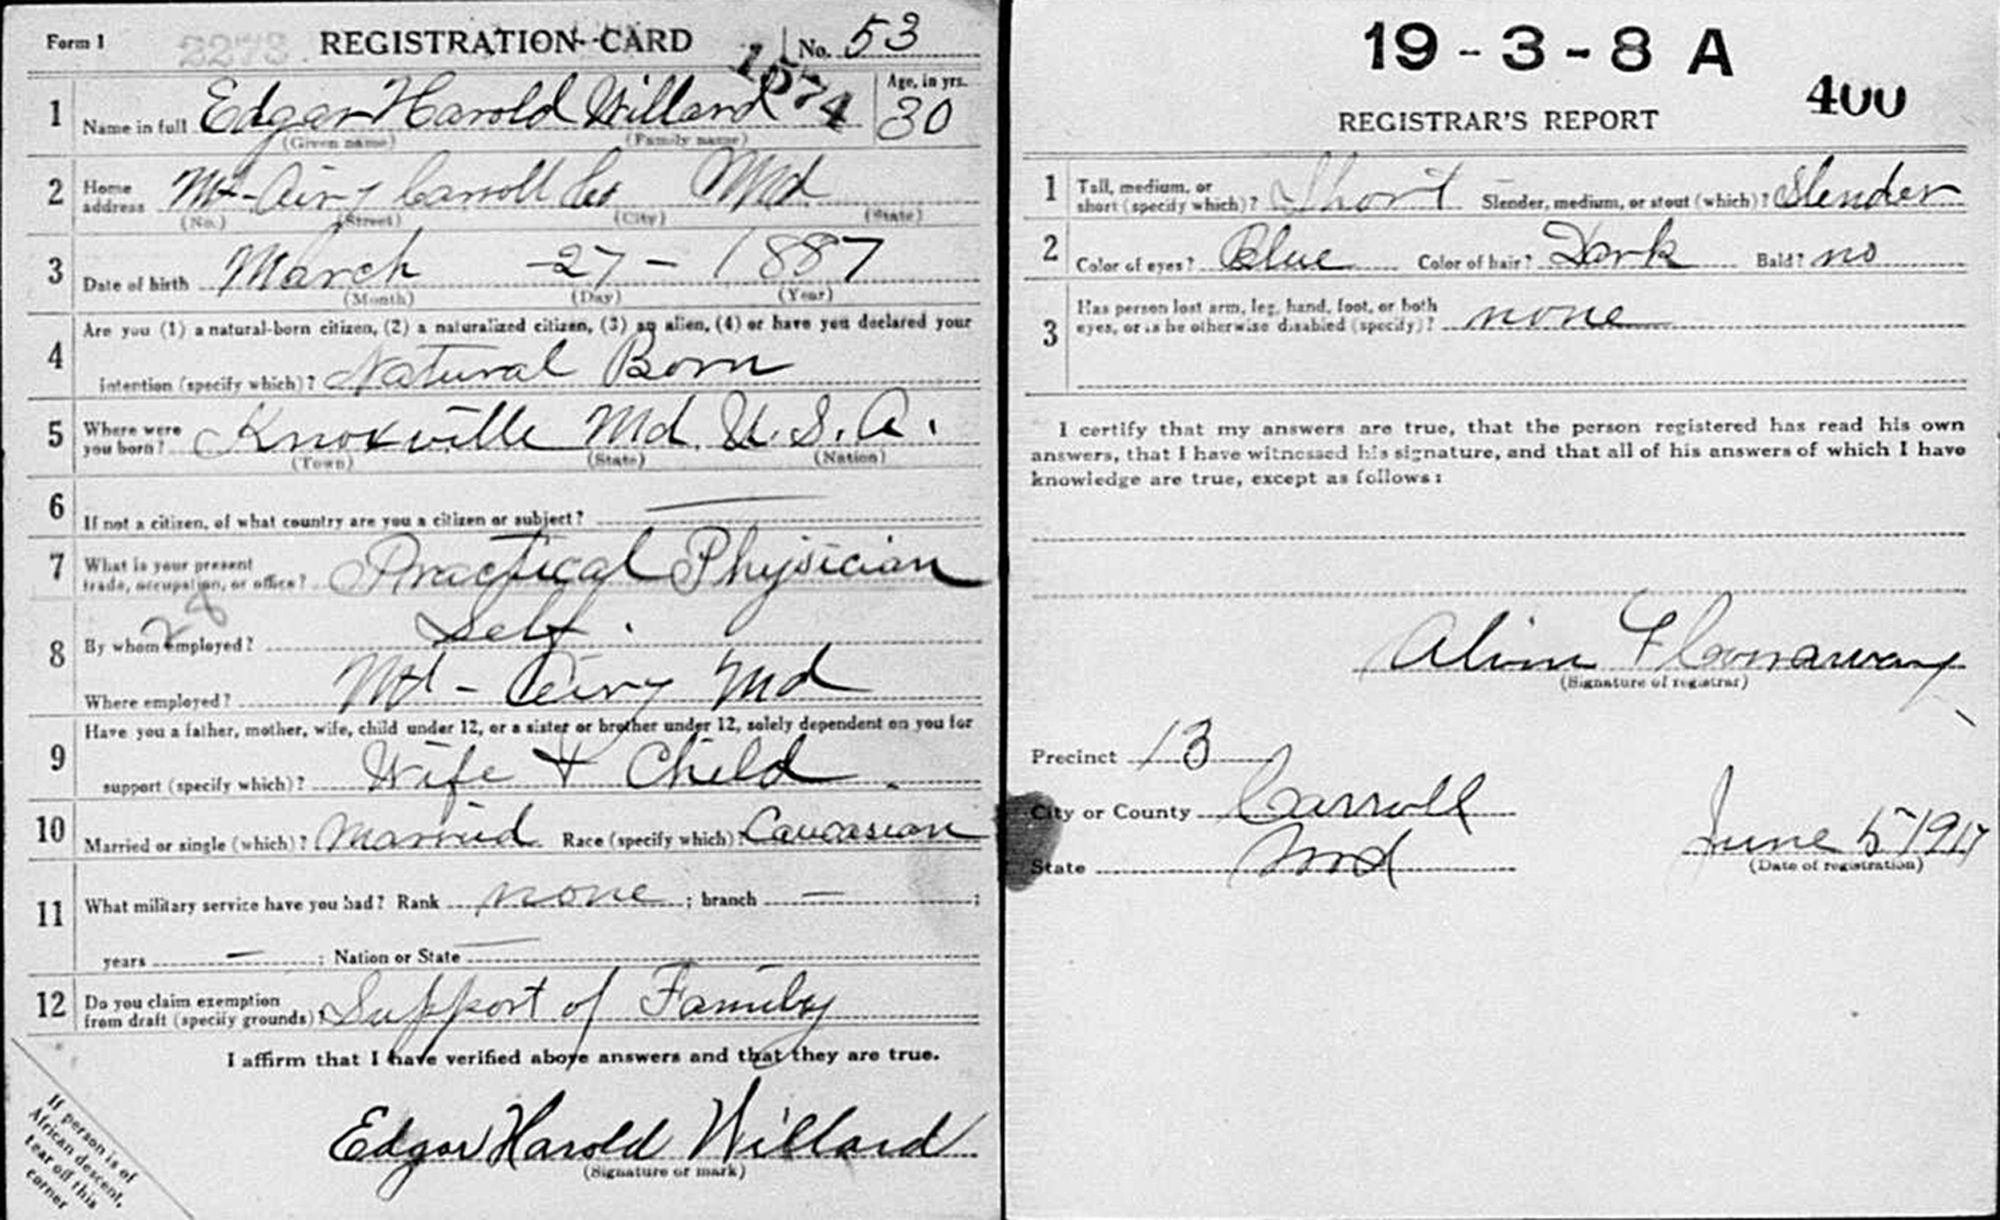 Form 1 2273 REGISTRATION CARD No. 53
1574
1 Name in full Edgar Harold Willard Age, in yrs. 30
(Given name) (Family name)
2 Home address Mt-Airy Carroll Co Md.
(No.) (Street) (City) (State)
3 Date of birth March -27- 1887
(Month) (Day) (Year)
4 Are you (1) a natural-born citizen, (2) a naturalized citizen, (3) an alien, (4) or have you declared your
intention (specify which)? Natural Born
5 Where were you born? Knoxville Md. U.S.A.
(Town) (State) (Nation)
6 If not a citizen, of what country are you a citizen or subject?
7 What is your present trade, occupation, or office? Practical Physician
28
8 By whom employed? Self.
Where employed? Mt-Airy Md
9 Have you a father, mother, wife, child under 12, or a sister or brother under 12, solely dependent on you for
support (specify which)? Wife + Child
10 Married or single (which)? Married Race (specify which)? Caucasian
11 What military service have you had? Rank none ; branch — ;
years — ; Nation or State —
12 Do you claim exemption from draft (specify grounds)? Support of Family
I affirm that I have verified above answers and that they are true.
Edgar Harold Willard
(Signature or mark)
If person is of
African descent,
tear off this
corner
19-3-8 A
400
REGISTRAR'S REPORT
1 Tall, medium, or short (specify which)? Short Slender, medium, or stout (which)? Slender
2 Color of eyes? Blue Color of hair? Dark Bald? no
3 Has person lost arm, leg, hand, foot, or both
eyes, or is he otherwise disabled (specify)? none
I certify that my answers are true, that the person registered has read his own
answers, that I have witnessed his signature, and that all of his answers of which I have
knowledge are true, except as follows:
(Signature of registrar)
Precinct 13
City or County Carroll
State Md
June 5 1917
(Date of registration)